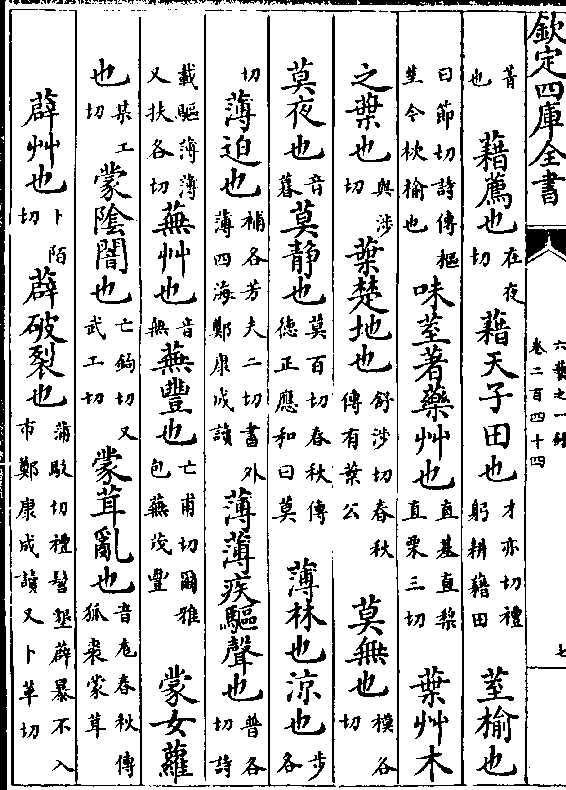 欽定四庫全書
六藝之一録
卷二百四十四
七
菁也 藉薦也在夜切 藉天子田也才亦切禮躬耕藉田 荎榆也
曰節切詩傳樞荎今枕榆也 味荎著藥艸也直基直梨直栗三切 葉艸木
之葉也與涉切 葉楚地也舒涉切春秋傳有葉公 莫無也模各切
莫夜也音暮 莫静也莫百切春秋傳德正應和曰莫 薄林也涼也步各
切 薄迫也補各芳夫二切書外薄四海鄭康成讀 薄薄疾驅聲也普各切詩
載驅薄薄又扶各切 蕪艸也音無 蕪豐也亡甫切爾雅包蕪茂豐 蒙女蘿
也某工切 蒙陰闇也亡鉤切又武工切 蒙茸亂也音尨春秋傳狐裘蒙茸
薜艸也卜陌切 薜破裂也蒲切禮髻墾薜暴不入市鄭康成讀又卜革切